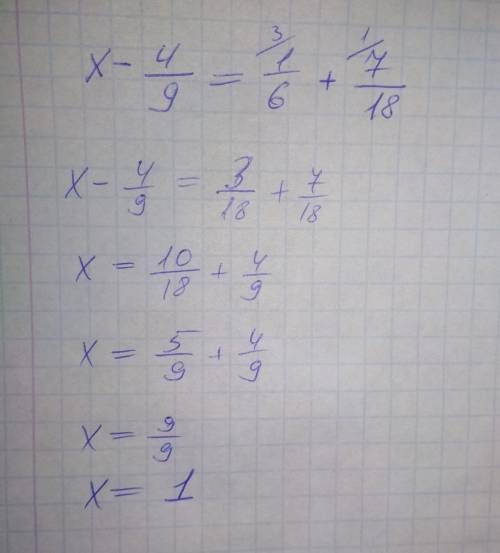 x - 4/9 = 3/ 1/6 + 1/ 7/18
x - 4/9 = 3/18 + 7/18
x = 10/18 + 4/9
x = 5/9 + 4/9
x = 9/9
x = 1